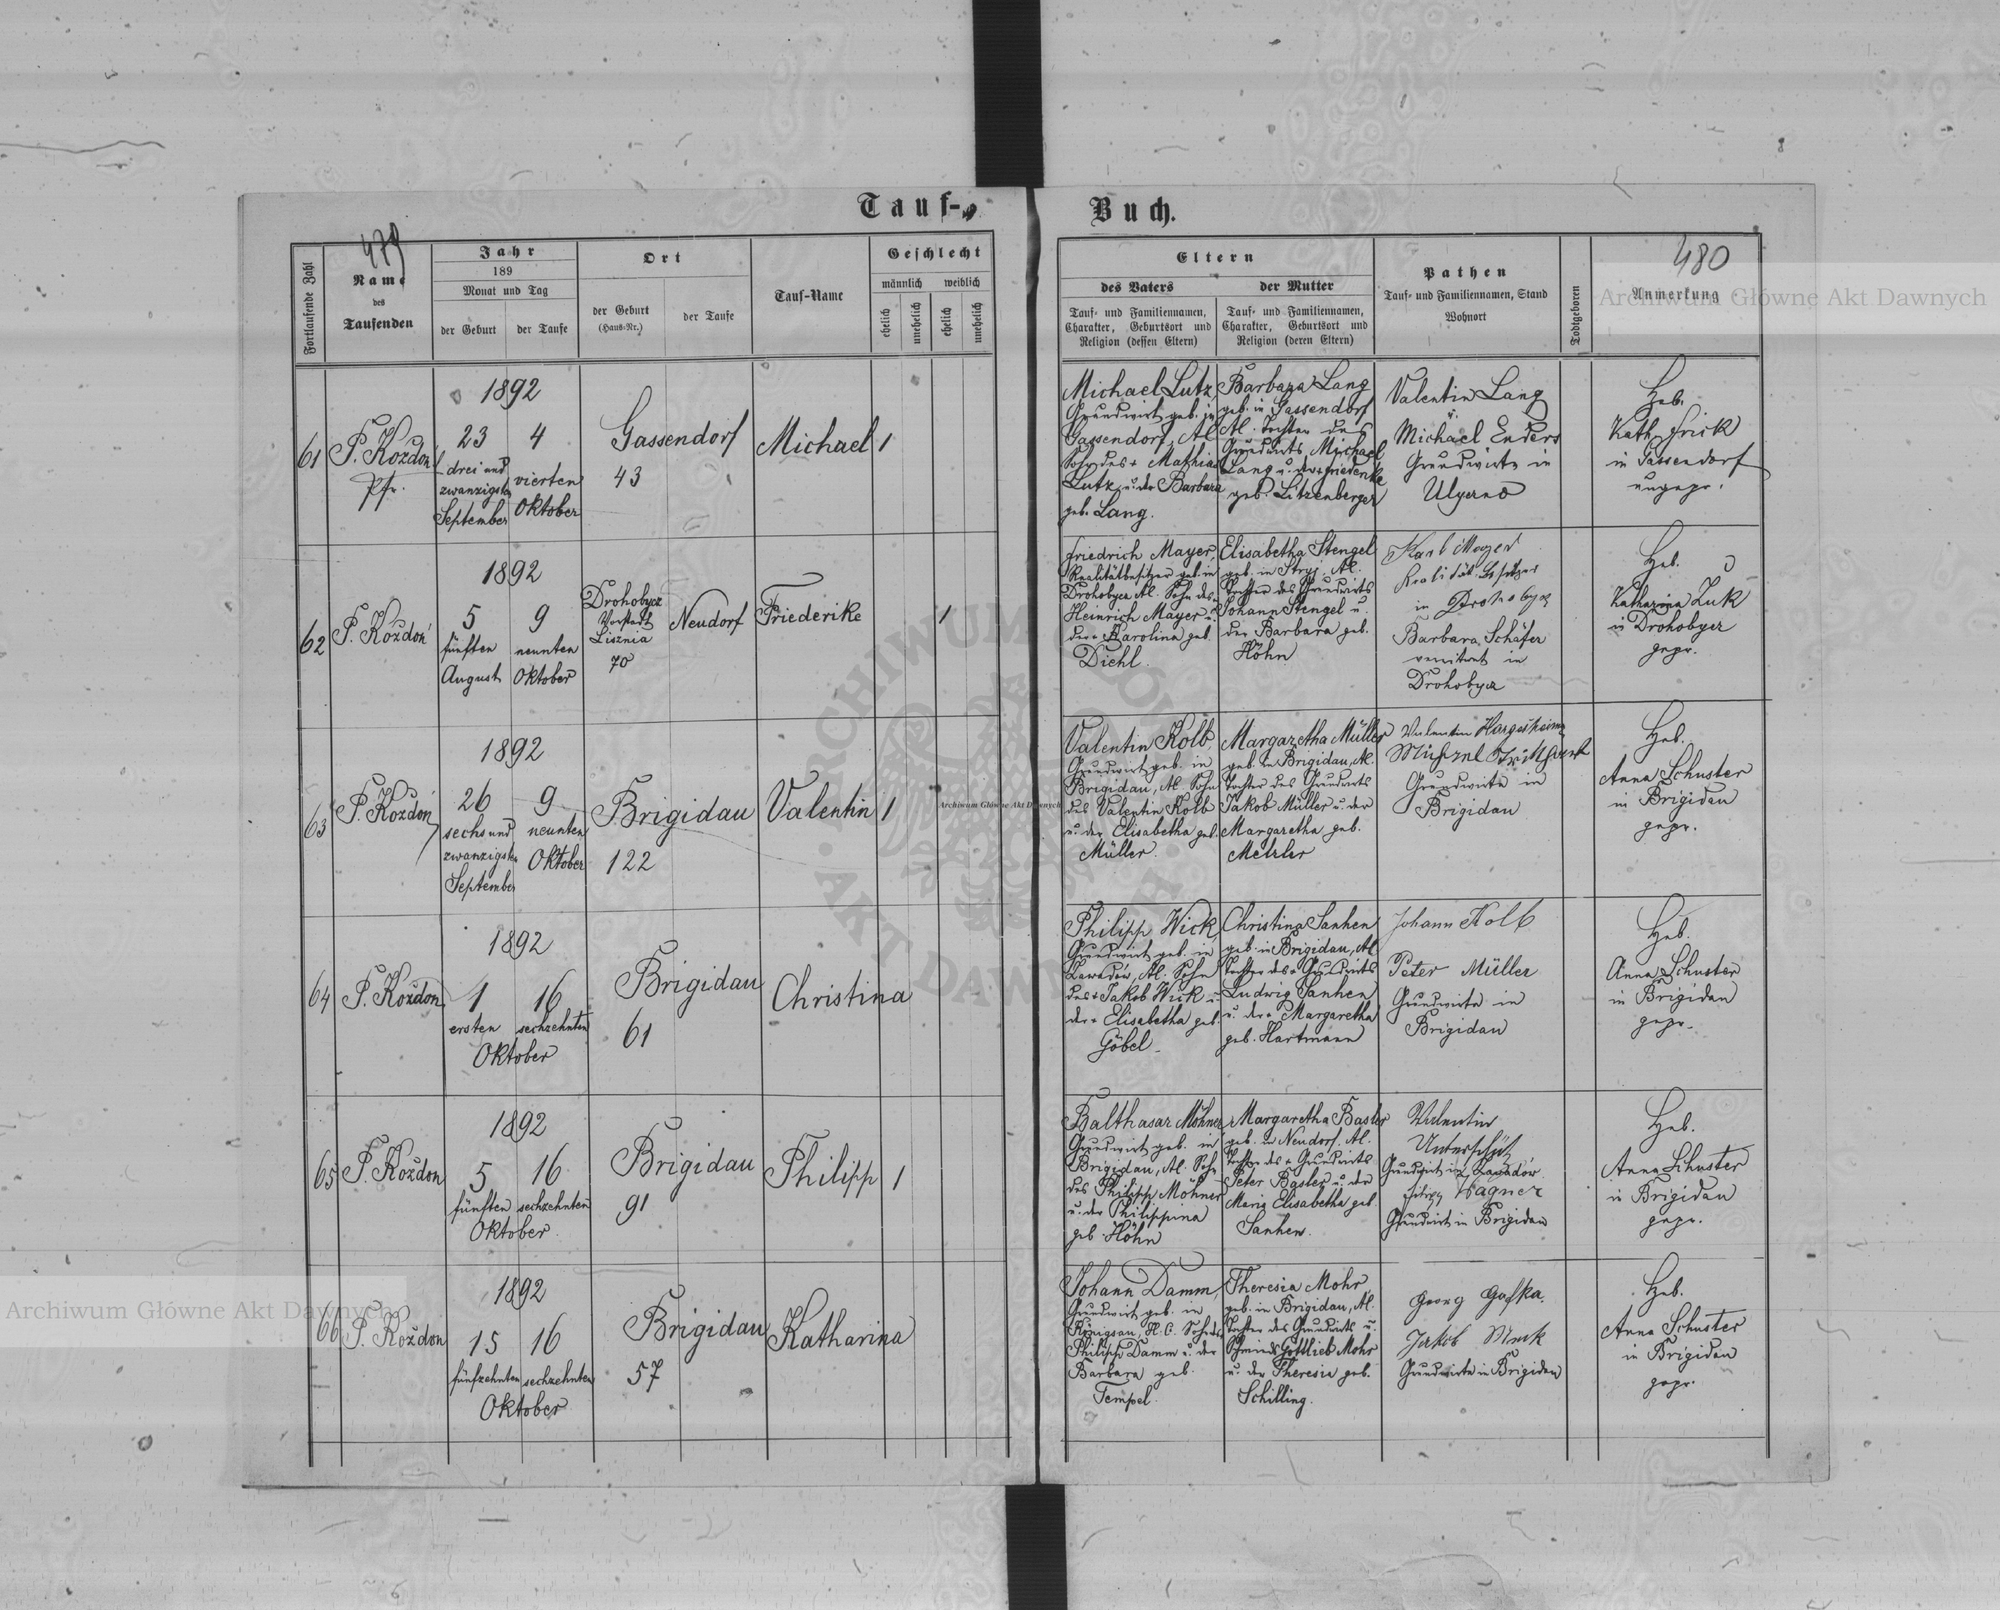 Tauf-
Buch.
479
480
Fortlaufende Zahl
Name
des
Taufenden
Jahr
189
Monat und Tag
der Geburt
der Taufe
Ort
der Geburt
(Haus-Nr.)
der Taufe
Tauf-Name
Geschlecht
männlich
weiblich
ehelich
unehelich
ehelich
unehelich
Eltern
des Vaters
der Mutter
Tauf- und Familiennamen,
Charakter, Geburtsort und
Religion (dessen Eltern)
Tauf- und Familiennamen,
Charakter, Geburtsort und
Religion (deren Eltern)
Pathen
Tauf- und Familiennamen, Stand
Wohnort
Todtgeboren
Anmerkung
Archiwum Główne Akt Dawnych
61
P. Koždoń
Pfr.
1892
23
drei und
zwanzigsten
September
4
vierten
Oktober
Gassendorf
43
Michael
1
Michael Lutz,
Grundwirt geb. in
Gassendorf, Al.
Sohn des + Mathias
Lutz u. der Barbara
geb. Lang.
Barbara Lang
geb. in Gassendorf
Al. Tochter des
Grundwirts Michael
Lang u. der Friederike
geb. Litzenberger
Valentin Lang
u.
Michael Enders
Grundwirte in
Ulyczno
Heb.
Kath. Frick
in Gassendorf
ungepr.
62
P. Koždoń
1892
5
fünften
August
9
neunten
Oktober
Drohobycz
Vorstadt
Lisznia
70
Neudorf
Friederike
1
Friedrich Mayer,
Realitätbesitzer geb. in
Drohobycz Al. Sohn des
Heinrich Mayer u.
der + Karolina geb.
Diehl.
Elisabetha Stengel
geb. in Stryj, Al.
Tochter des Grundwirts
Johann Stengel u.
der Barbara geb.
Höhn
Karl Mayer
Realitätbesitzer
in Drohobycz
Barbara Schäfer
verwitwet in
Drohobycz
Heb.
Katharina Zuk
in Drohobycz
gepr.
63
P. Koždoń
1892
26
sechs und
zwanzigsten
September
9
neunten
Oktober
Brigidau
122
Valentin
1
Valentin Kolb,
Grundwirt geb. in
Brigidau, Al. Sohn
des Valentin Kolb
u. der Elisabetha geb.
Müller.
Margaretha Müller
geb. in Brigidau, Al.
Tochter des Grundwirts
Jakob Müller u. der
Margaretha geb.
Metzler
Valentin Hargesheimer
Michael
Grundwirte in
Brigidau
Heb.
Anna Schuster
in Brigidau
gepr.
64
P. Koždon
1892
1
ersten
16
sechzehnten
Oktober
Brigidau
61
Christina
Philipp Wick,
Grundwirt geb. in
Zawadów, Al. Sohn
des + Jakob Wick u.
der + Elisabetha geb.
Göbel.
Christina Sanhen
geb. in Brigidau, Al.
Tochter des + Grundwirts
Ludwig Sanhen
u. der + Margaretha
geb. Hartmann
Johann Kolb
Peter Müller
Grundwirte in
Brigidau
Heb.
Anna Schuster
in Brigidau
gepr.
65
P. Koždon
1892
5
fünften
16
sechzehnten
Oktober
Brigidau
91
Philipp
1
Balthasar Möhner
Grundwirt geb. in
Brigidau, Al. Sohn
des Philipp Möhner
u. der Philippina
geb. Höhn
Margaretha Baster
geb. in Neudorf, Al.
Tochter des + Grundwirts
Peter Baster u. der
Maria Elisabetha geb.
Sanhen.
Valentin
Unterschütz
Grundwirt in Zawadów
Wagner
Grundwirt in Brigidau
Heb.
Anna Schuster
in Brigidau
gepr.
66
P. Koždon
1892
15
fünfzehnten
16
sechzehnten
Oktober
Brigidau
57
Katharina
Johann Damm,
Grundwirt geb. in
Königsau, H. C. Sohn des
Philipp Damm u. der
Barbara geb.
Tempel.
Theresia Mohr
geb. in Brigidau, Al.
Tochter des Grundwirts u.
Schmieds Gottlieb Mohr
u. der Theresia geb.
Schilling.
Georg Gafka.
Jakob
Grundwirte in Brigidau
Heb.
Anna Schuster
in Brigidau
gepr.
Archiwum Główne Akt Dawnych
Archiwum Główne Akt Dawnych